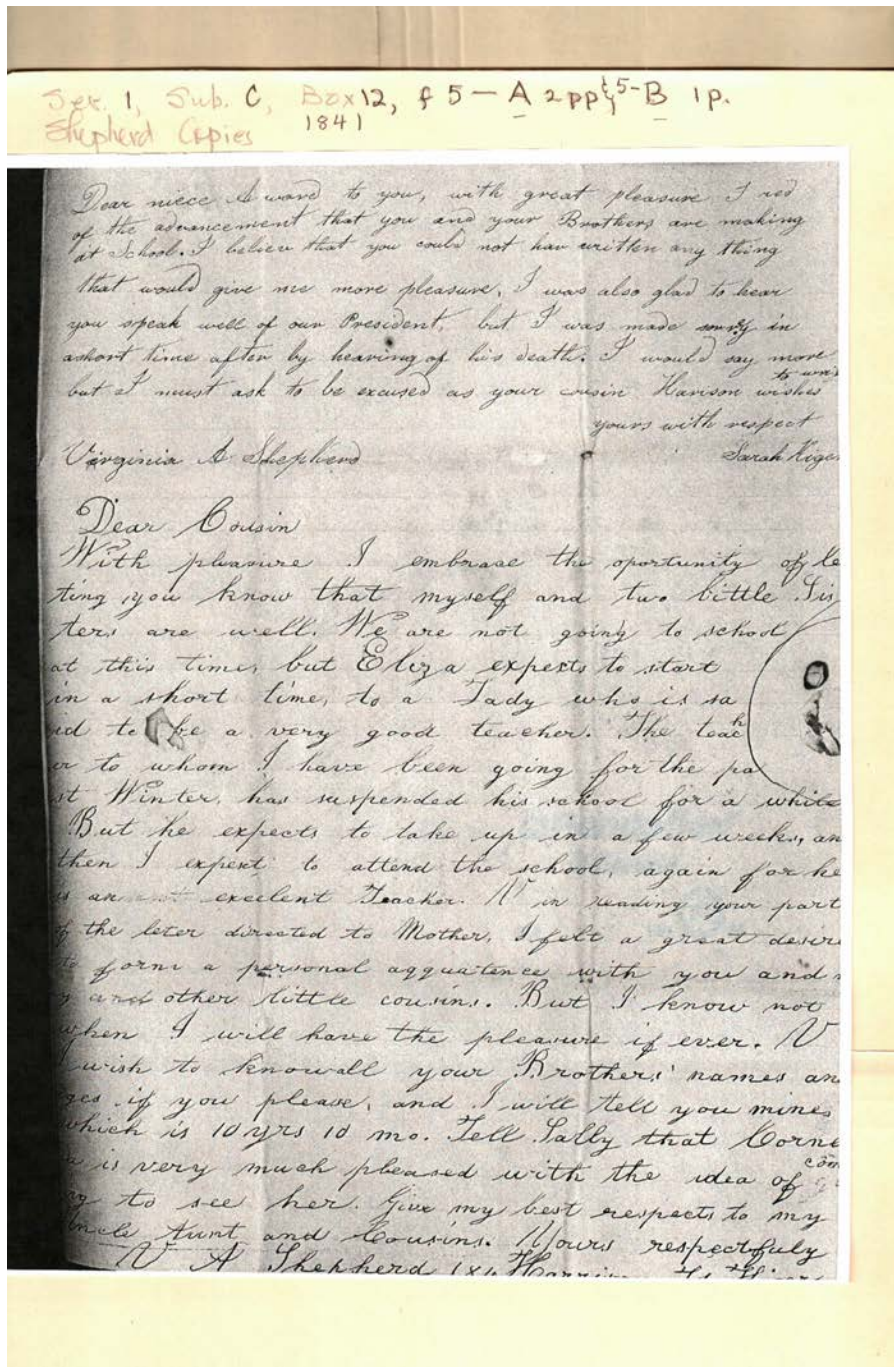 Ser. 1, Sub. C, Box 12, f 5 — A 2 pp & 5-B 1 p.
Shepherd Copies 1841
Dear niece A word to you, with great pleasure I red
of the advancement that you and your Brothers are making
at School. I believ that you could not hav written any thing
that would give me more pleasure. I was also glad to hear
you speak well of our President, but I was made sorry in
a short time after by hearing of his death. I would say more
but I must ask to be excused as your cousin Harison wishes
to
yours with respect
Virginia A Shepherd Sarah
Dear Cousin
With pleasure I embrase the oportunity of le
ting you know that myself and two little Sis
ters are well. We are not going to school
at this time, but Eliza expects to start
in a short time, to a Lady who is sa
id to be a very good teacher. The teach
er to whom I have been going for the pa
st Winter, has suspended his school for a while
But he expects to take up in a few weeks, an
then I expect to attend the school, again for he
is an excelent Teacher. V in reading your part
of the leter directed to Mother, I felt a great desire
to form a personal aqquatence with you and
and other little cousins. But I know not
when I will have the pleasure if ever. V
wish to know all your Brothers' names an
ges if you please, and I will tell you mine
which is 10 yrs 10 mo. Tell Sally that Corne
a is very much pleased with the idea of com
ng to see her. Give my best respects to my
Uncle Aunt and Cousins. Yours respectfuly
V A Shepherd